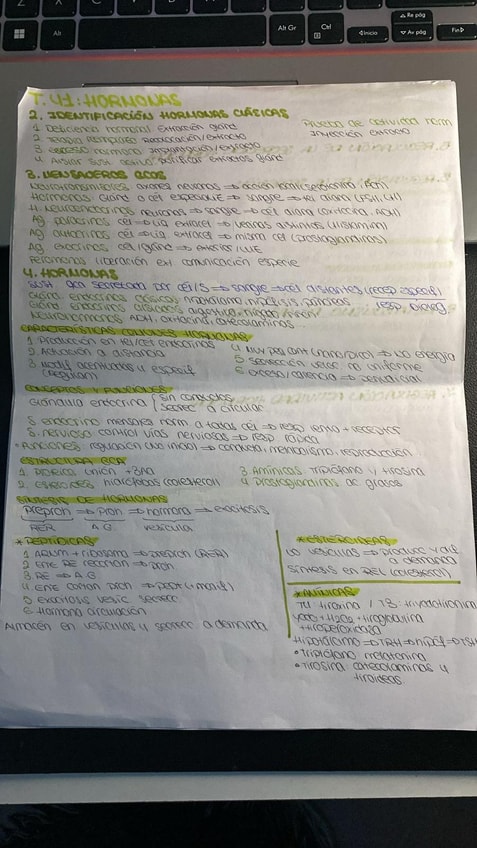 T.41: HORMONAS
2. IDENTIFICACIÓN HORMONAS CLÁSICAS
1 Deficiencia hormonal extracción gland
2 Terapia reemplazo Reaplicación/extracto
3 Exceso hormona implantación/extracto
4 Aislar sust activa purificar extractos gland
Prueba de actividad horm
inyección extracto
3. MENSAJEROS QCOS
Neurotransmisores axones neuronas ⇒ acción
Hormonas Gland o cél especialize ⇒ sangre ⇒ cél diana
H. Neuroendocrinas neuronas ⇒ sangre ⇒ cél diana (oxitocina, ADH)
Ag paracrinos cél ⇒ liq extracel ⇒ vecinas distintas (histamina)
Ag autocrinos cél ⇒ liq extracel ⇒ misma cél (prostaglandinas)
Ag exocrinos cél/gland ⇒ exterior
Feromonas liberación ext comunicación especie
4. HORMONAS
Sust qca secretada por cél/s ⇒ sangre ⇒ cél distantes (recep específ)
resp biológ
Gland endocrinas clásicas hipotálamo, hipófisis, páncreas
Gland endocrinas
Neurohormonas ADH, oxitocina, catecolaminas
CARACTERÍSTICAS COMUNES HORMONAS
1 Producción en tej/cél endocrinos
2 Actuación a distancia
3 Modif acentuadas y específ
(regulan)
4 Muy peq cant (nano/pico) ⇒ no energía
5 Secreción veloc no uniforme
6 Exceso/carencia ⇒ perjudicial
CONCEPTOS Y FUNCIONES
Glándula endocrina { sin conductos
secrec a circular
S endocrino mensajes horm a todas cél ⇒ resp lenta + receptores
S. nervioso control vías nerviosas ⇒ resp rápida
• Funciones regulación ⇒ conducta, metabolismo, reproducción
ESTRUCTURA QCA
1 Proteica unión +3AA
2 Esteroides hidrófobas (colesterol)
3 Amínicas triptófano y tirosina
4 Prostaglandinas ác grasos
SÍNTESIS DE HORMONAS
Preproh ⇒ Proh ⇒ hormona ⇒ exocitosis
RER A.G vesícula
* PEPTÍDICAS
1 ARNm + ribosoma ⇒ preproh (RER)
2 Enz RE recortan ⇒ proh
3 RE ⇒ A.G
4 Enz cortan proh ⇒ pépt (+ modif)
5 Exocitosis vesíc secrec
6 Hormona circulación
Almacén en vesículas y secrec a demanda
* ESTEROIDEAS
No vesículas ⇒ produce y dif
a demanda
Síntesis en REL (colesterol)
* AMÍNICAS
T4 tiroxina / T3: triyodotironina
Yodo + H2O2 + tiroglobulina
+ tiroperoxidasa
Hipotálamo ⇒ TRH ⇒ hipóf ⇒ TSH
• Triptófano melatonina
• Tirosina catecolaminas y
tiroideas